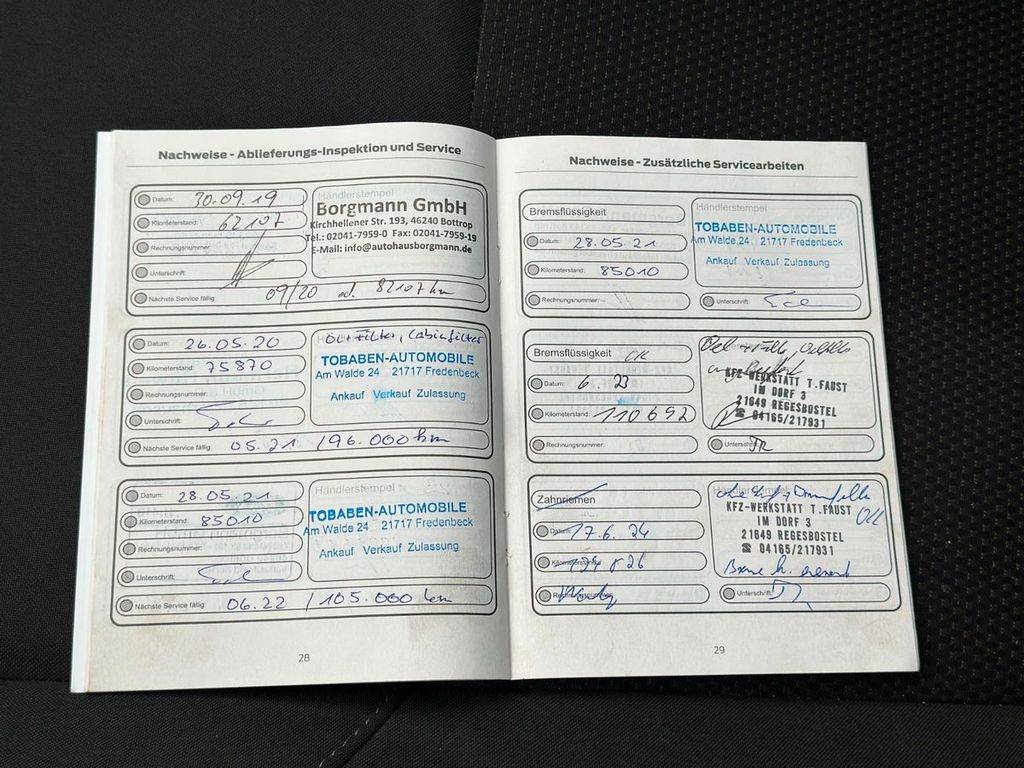 Nachweise - Ablieferungs-Inspektion und Service
Datum: 30.09.19
Kilometerstand: 62107
Rechnungsnummer:
Unterschrift:
Nächste Service fällig: 09/20 od. 82107 km
Händlerstempel
Borgmann GmbH
Kirchhellener Str. 193, 46240 Bottrop
Tel.: 02041-7959-0 Fax: 02041-7959-19
E-Mail: info@autohausborgmann.de
Datum: 26.05.20
Kilometerstand: 75870
Rechnungsnummer:
Unterschrift:
Nächste Service fällig: 05.21 / 96.000 km
Öl + Filter, Cabinfilter
TOBABEN-AUTOMOBILE
Am Walde 24 21717 Fredenbeck
Ankauf Verkauf Zulassung
Datum: 28.05.21
Kilometerstand: 85010
Rechnungsnummer:
Unterschrift:
Nächste Service fällig: 06.22 / 105.000 km
Händlerstempel
TOBABEN-AUTOMOBILE
Am Walde 24 21717 Fredenbeck
Ankauf Verkauf Zulassung
28
Nachweise - Zusätzliche Servicearbeiten
Bremsflüssigkeit
Datum: 28.05.21
Kilometerstand: 85010
Rechnungsnummer:
Händlerstempel
TOBABEN-AUTOMOBILE
Am Walde 24 21717 Fredenbeck
Ankauf Verkauf Zulassung
Unterschrift:
Bremsflüssigkeit OK
Datum: 6. 23
Kilometerstand: 110692
Rechnungsnummer:
KFZ-WERKSTATT T.FAUST
IM DORF 3
21649 REGESBOSTEL
☎ 04165/217931
Unterschrift:
Zahnriemen
Datum: 17.6.24
Kilometerstand:
Rechnungsnummer:
Händlerstempel
KFZ-WERKSTATT T.FAUST
IM DORF 3
21649 REGESBOSTEL
☎ 04165/217931
Unterschrift:
29